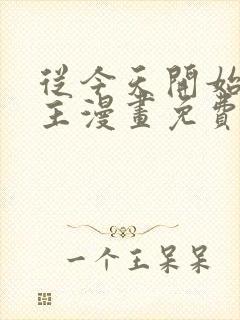 從今天開始
王漫畫免費
一个王呆呆